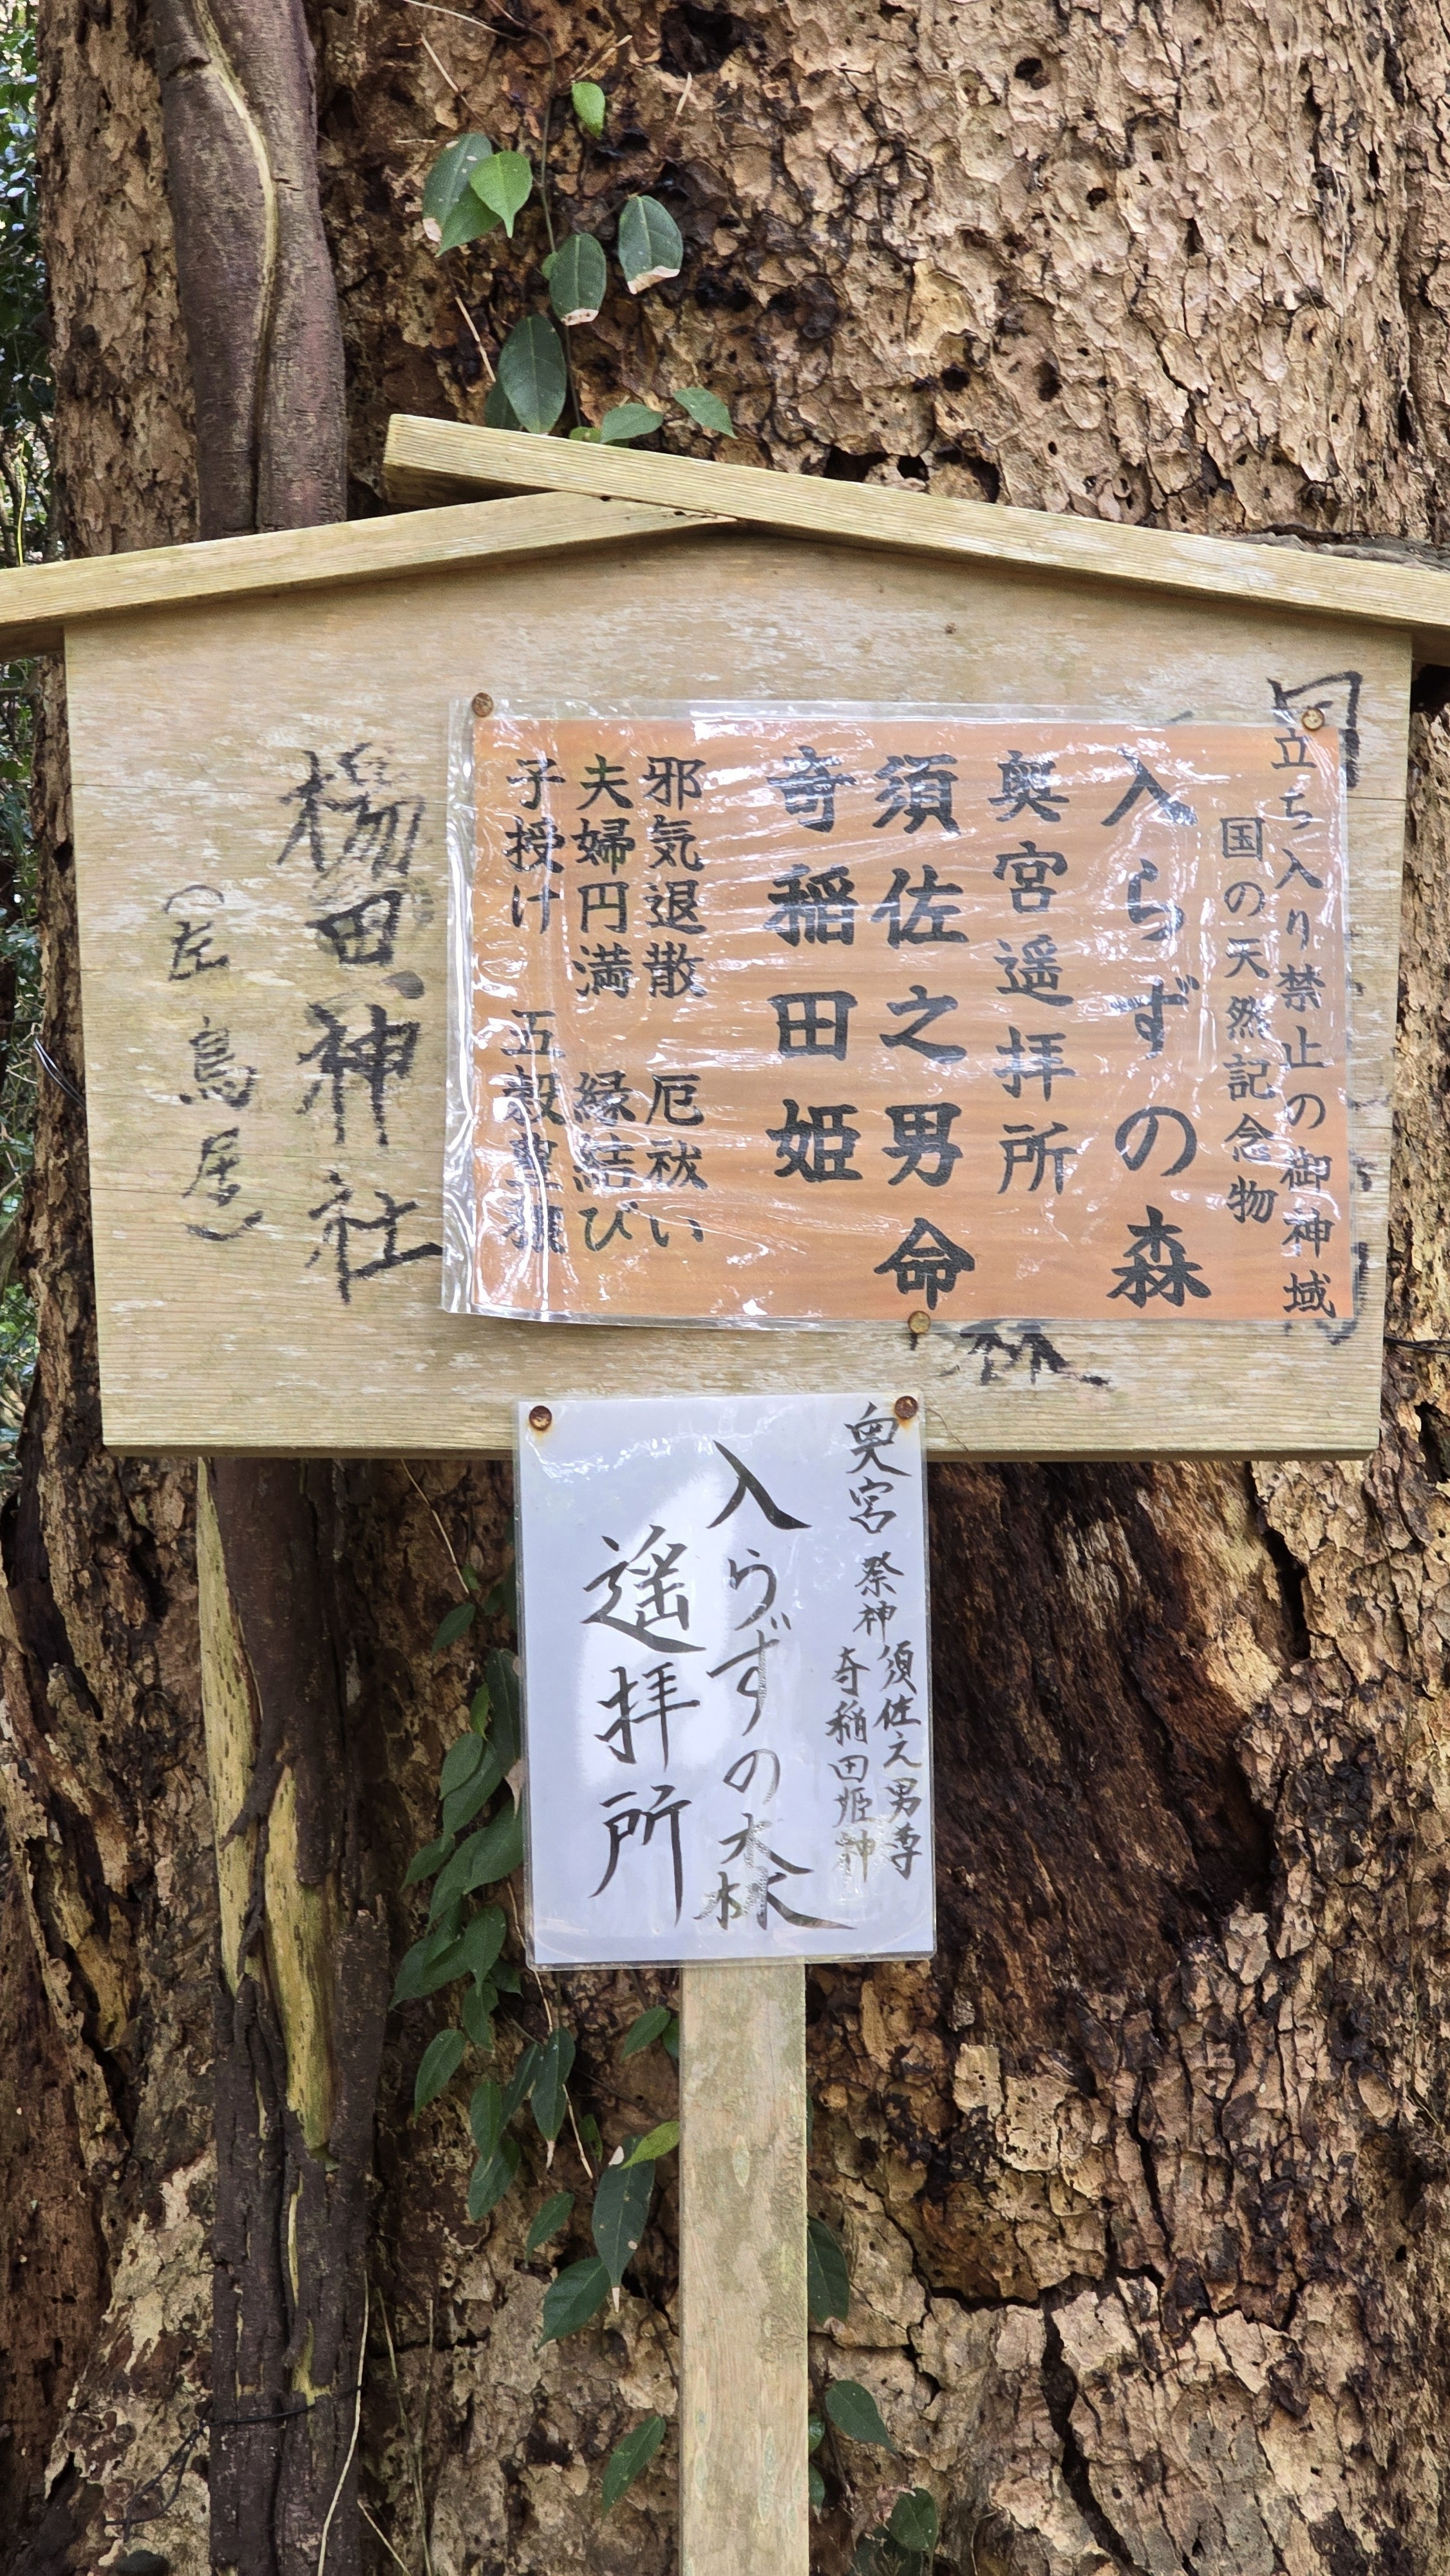 立ち入り禁止の御神域
国の天然記念物
入らずの森
奥宮遥拝所
須佐之男命
奇稲田姫
邪気退散 厄祓い
夫婦円満 縁結び
子授け 五穀豊穣
楊田神社
（左 鳥居）
奥宮 祭神 須佐之男尊
奇稲田姫神
入らずの森
遥拝所